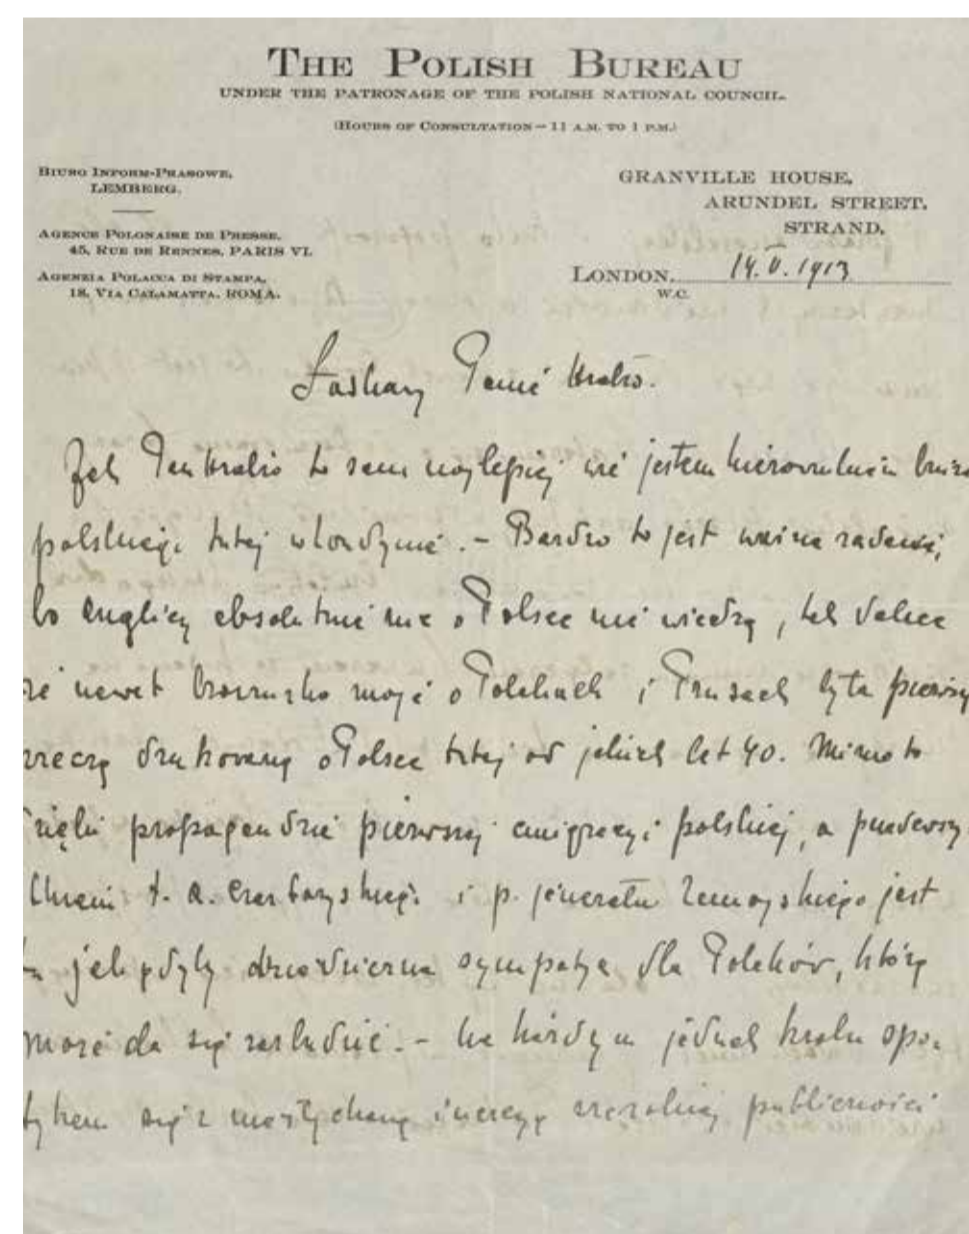 THE POLISH BUREAU
UNDER THE PATRONAGE OF THE POLISH NATIONAL COUNCIL.
(HOURS OF CONSULTATION – 11 A.M. TO 1 P.M.)
BIURO INFORM-PRASOWE,
LEMBERG.
AGENCE POLONAISE DE PRESSE,
45, RUE DE RENNES, PARIS VI.
AGENZIA POLACCA DI STAMPA,
18, VIA CALAMATTA, ROMA.
GRANVILLE HOUSE,
ARUNDEL STREET,
STRAND,
LONDON, 14. V. 1913
W.C.
Łaskawy Panie Hrabio.
Jak Pan Hrabio to sam najlepiej wie jestem kierownikiem biura
polskiego tutaj w Londynie. – Bardzo to jest ważne zadanie,
bo anglicy absolutnie nic o Polsce nie wiedzą, tak dalece
że nawet broszurka moja o Polakach i Prusach była pierwszą
rzeczą drukowaną o Polsce tutaj od jakich lat 40. Mimo to
dzięki propagandzie pierwszej emigracyi polskiej, a
A. Czartoryskiego i p. jenerała Zamoyskiego jest
tu jak gdyby sympatya dla Polaków, którą
może da się . – Na każdym jednak kroku spo-
tykam się z niesłychaną inercyą publiczności